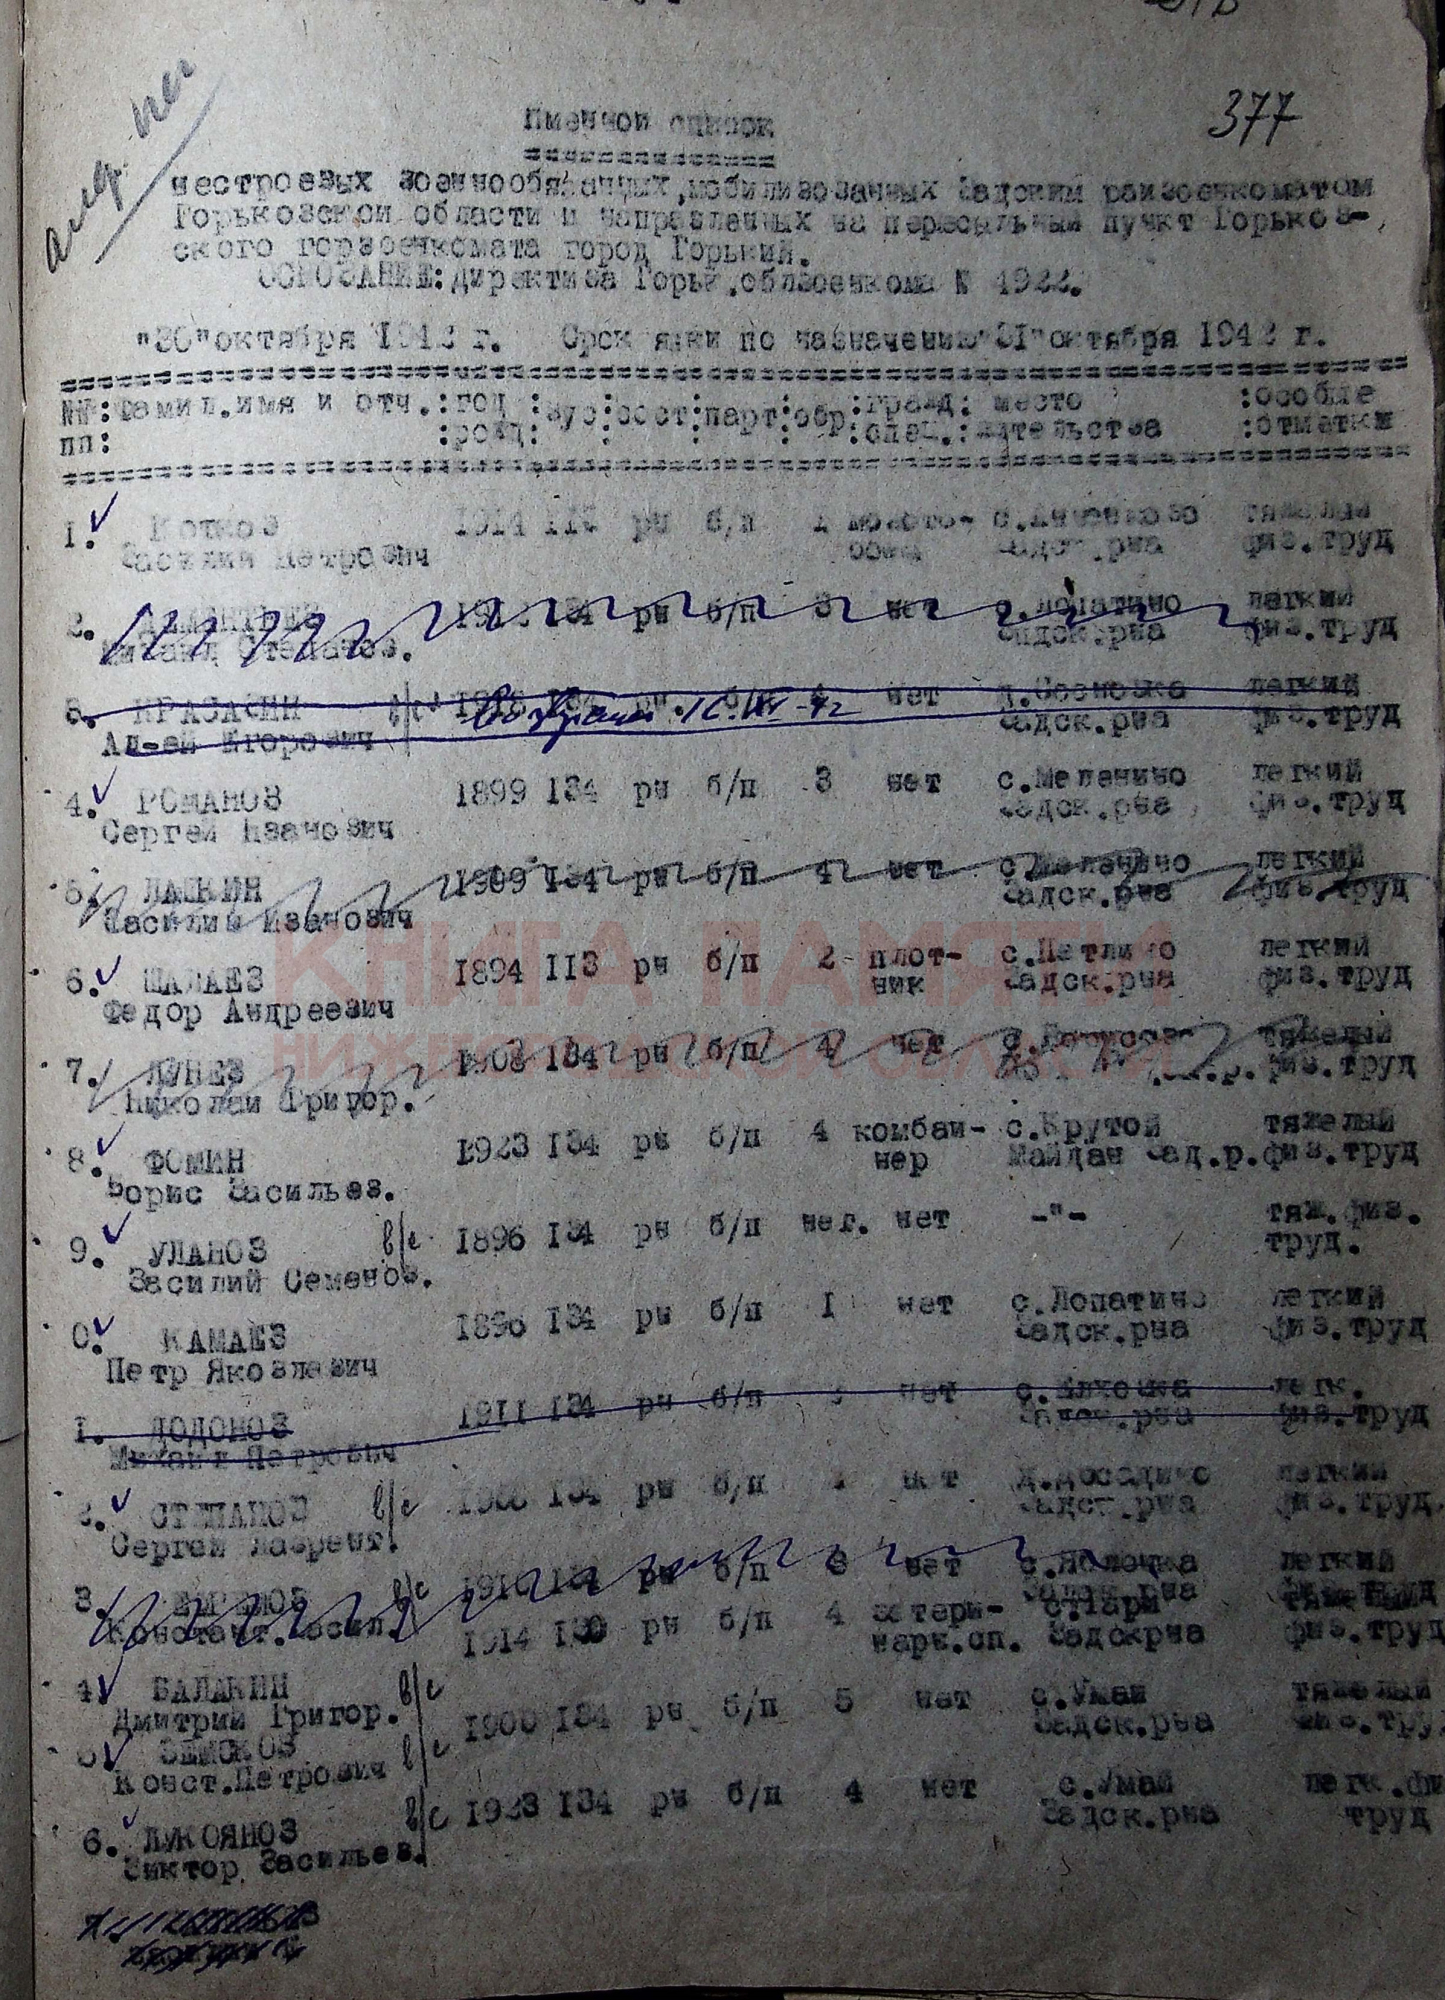 377
Именной список
нестроевых военнообязанных, мобилизованных Вадским райвоенкоматом
Горьковской области и направленных на пересыльный пункт Горьков-
ского горвоенкомата город Горький.
ОСНОВАНИЕ: директива Горьк.облвоенкома № 4922.
"30" октября 1942 г. Срок явки по назначению "31" октября 1942 г.
№№: Фамил.имя и отч.: год : вус: сост: парт: обр: гражд: место : особые
пп: : рожд: : : : : спец.: жительства : отметки
1. Котков 1914 113 рн б/п 1 с. тяжелый
Василий Петрович Вадск.рна физ.труд
2. 134 рн б/п 3 нет с.Лопатино легкий
Михаил Степанов. Вадск.рна физ.труд
3. КРАСАВИН рн. б/п 4 нет д.Сосновка легкий
Егорович Вадск.рна физ.труд
4. РОМАНОВ 1899 134 рн б/п 3 нет с.Меленино легкий
Сергей Иванович Вадск.рна физ.труд
5. ЛАШКИН 1909 134 рн б/п 4 нет с.Меленино легкий
Василий Иванович Вадск.рна физ.труд
6. ШАЛАЕВ 1894 113 рн б/п 2 плот- с.Петлино легкий
Федор Андреевич ник Вадск.рна физ.труд
7. ЛУНЕВ 1908 134 рн б/п 4 нет тяжелый
Николай Григор. физ.труд
8. ФОМИН 1923 134 рн б/п 4 комбаи- с.Крутой тяжелый
Борис Васильев. нер Майдан Вад.р. физ.труд
9. УЛАНОВ в/с 1896 134 рн б/п нег. нет -"- тяж.физ.
Василий Семенов. труд.
0. КАМАЕВ 1896 134 рн б/п 1 нет с.Лопатино легкий
Петр Яковлевич Вадск.рна физ.труд
1. ДОДОНОВ 1911 134 рн б/п нет с.Елховка легк.
Михаил Петрович Вадск.рна физ.труд
2. СТЕПАНОВ в/с 134 рн б/п нет легкий
Сергей Лаврент. Вадск.рна физ.труд
3. ЕФРЕМОВ в/с рн б/п 3 нет с.Яблочка легкий
Констант. Васил. Вадск.рна физ.труд
1914 рн б/п 4 ветери- тяжелый
нарн.сп. Вадскрна физ.труд
4. БАЛАКИН в/с
Дмитрий Григор. 1900 134 рн б/п 5 нет с.Умай тяжелый
ЗЕМСКОВ в/с Вадск.рна физ.труд
Конст.Петрович
1923 134 рн б/п 4 нет с.Умай легк.фи
6. ЛУКОЯНОВ в/с Вадск.рна труд
Виктор Васильев.
КНИГА ПАМЯТИ
НИЖЕГОРОДСКОЙ ОБЛАСТИ